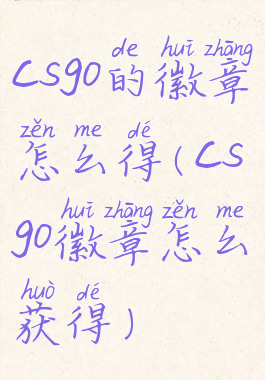 de huī zhāng
CS90的徽章
zěn me dé
怎么得(CS
huī zhāng zěn me
90徽章怎么
huò dé
获得)